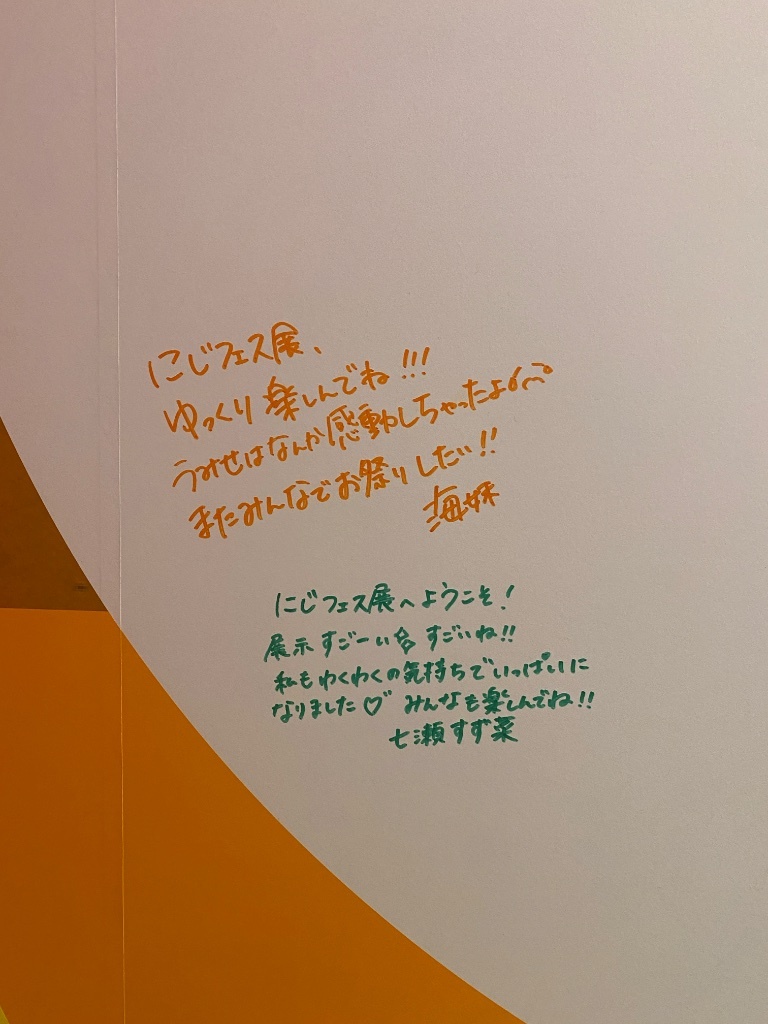 にじフェス展、
ゆっくり楽しんでね!!!
うみせはなんか感動しちゃったよ
またみんなでお祭りしたい!!
海妹
にじフェス展へようこそ!
展示すごーい すごいね!!
私もわくわくの気持ちでいっぱいに
なりました♡ みんなも楽しんでね!!
七瀬すず菜